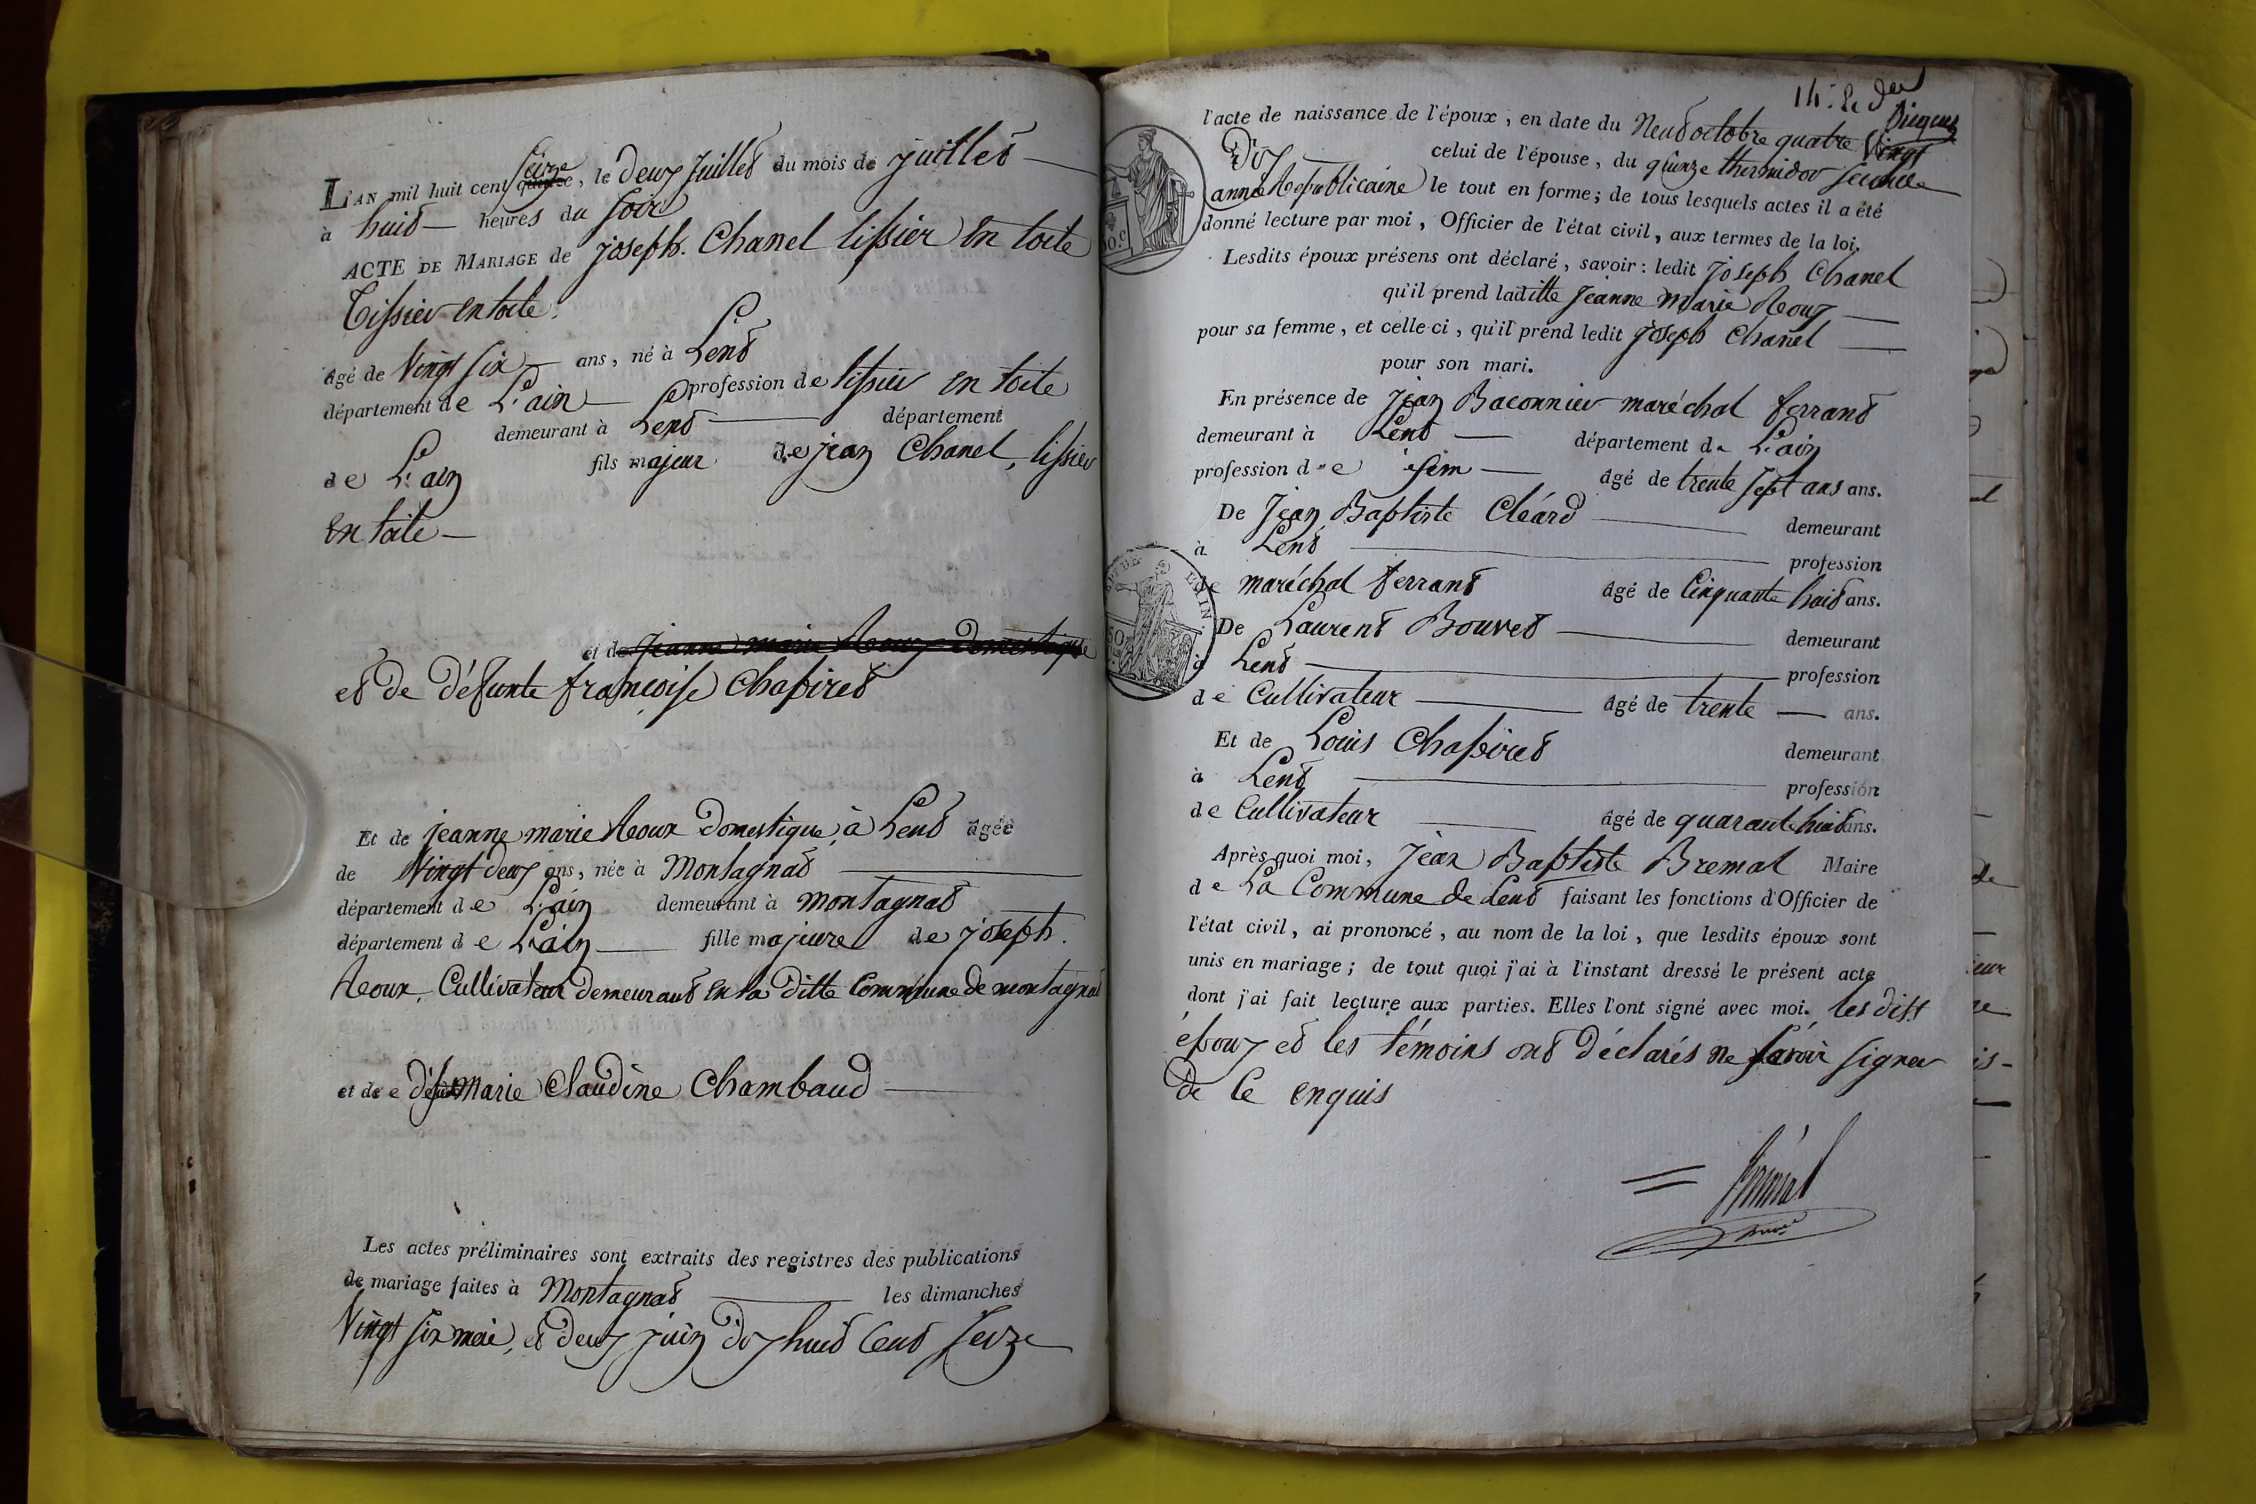 L'AN mil huit cent quinze seize, le deux Juillet du mois de juillet
à huit heures du soir
ACTE DE MARIAGE de joseph. Chanel tissier En toile
Tissier en toile.
âgé de Vingt six ans, né à Lent
département de L'ain profession de tissier en toile
demeurant à Lent département
de L'ain fils majeur de jean Chanel, tissier
en toile
et de Jeanne marie Roux Domestique
et de défunte françoise Chapiret
Et de jeanne marie Roux Domestique à Lent âgée
de Vingt deux ans, née à Montagnat
département de L'ain demeurant à montagnat
département de L'ain fille majeure de joseph.
Roux, Cultivateur demeurant en la ditte Commune de montagnat
et de défunte Marie Claudine Chambaud
Les actes préliminaires sont extraits des registres des publications
de mariage faites à Montagnat les dimanches
Vingt six mai, et deux juin dix huit Cent Seize
14.
l'acte de naissance de l'époux, en date du Neuf octobre quatre Vingt
Dix celui de l'épouse, du quinze thermidor seconde
année Republicaine le tout en forme; de tous lesquels actes il a été
donné lecture par moi, Officier de l'état civil, aux termes de la loi.
Lesdits époux présens ont déclaré, savoir: ledit Joseph Chanel
qu'il prend laditte Jeanne Marie Roux
pour sa femme, et celle-ci, qu'il prend ledit joseph Chanel
pour son mari.
En présence de Jean Baconnier maréchal ferrant
demeurant à Lent département de L'ain
profession de âgé de trente sept ans ans.
De Jean Baptiste Cléard demeurant
à Lent profession
de maréchal ferrant âgé de Cinquante huit ans.
De Laurent Bouvet demeurant
à Lent profession
de Cultivateur âgé de trente ans.
Et de Louis Chapiret demeurant
à Lent profession
de Cultivateur âgé de quarante huit ans.
Après quoi moi, Jean Baptiste Bremal Maire
de La Commune de Lent faisant les fonctions d'Officier de
l'état civil, ai prononcé, au nom de la loi, que lesdits époux sont
unis en mariage; de tout quoi j'ai à l'instant dressé le présent acte
dont j'ai fait lecture aux parties. Elles l'ont signé avec moi. les dits
époux et les témoins ont déclarés ne savoir signer
de ce enquis